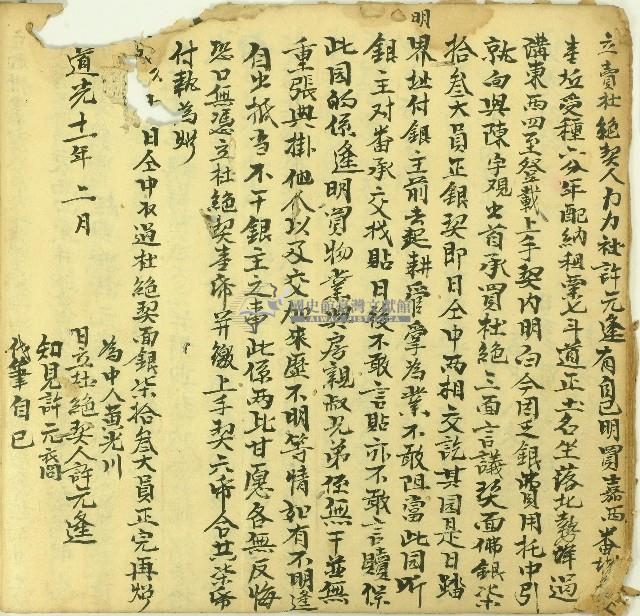 立賣杜絕契人力力社許元逢有自己明買嘉西番
坵受種六分年配納租粟七斗道正土名坐落北勢
溝東西四至登載上手契內明白今因乏銀費用托中引
就向與陳字觀出首承買杜絕三面言議契面佛銀柒
拾叁大員正銀契即日仝中兩相交訖其園是日踏
明界址付銀主前去起耕管掌為業不敢阻當此園所
銀主对番承交找貼日後不敢言貼亦不敢言贖保
此園的係逢明買物業與房親叔兄弟侄無干並無
重張典掛他人以及交加來歷不明等情如有不明逢
自出抵当不干銀主之事此係兩比甘愿各無反悔
恐口無憑立杜絕契壹帋并繳上手契六帋合共柒帋
付執為炤
日仝中收過杜絕契面銀柒拾叁大員正完再炤
為中人黃光川
道光十一年 二月 日立杜絕契人許元逢
知見許元
代筆自己
國史館臺灣文獻館